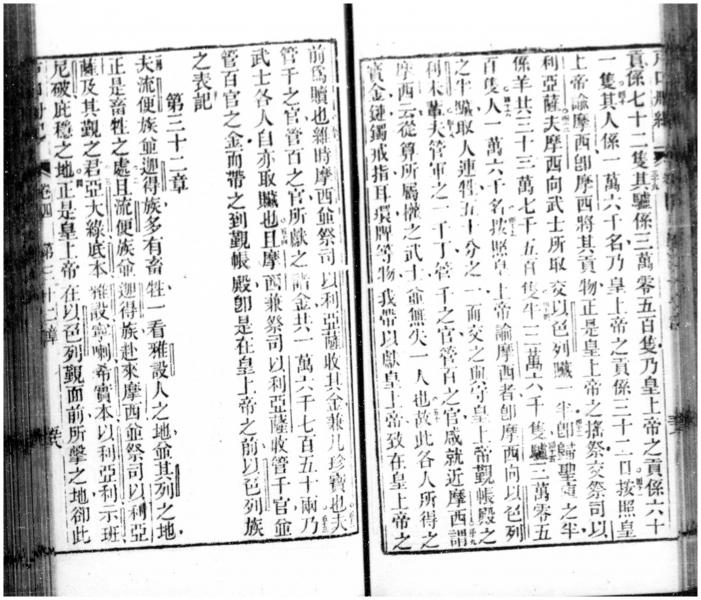 貢係七十二隻其驢係三萬零五百隻乃皇上帝之貢係六十
一隻其人係一萬六千名乃皇上帝之貢係三十二口按照皇
上帝諭摩西卽摩西將其貢物正是皇上帝之搖祭交祭司以
利亞薩夫摩西向武士所取交以色列臟一半卽歸聖會之半
係羊共三十三萬七千五百隻牛三萬六千隻驢三萬零五
百隻人一萬六千名按照皇上帝諭摩西者卽摩西向以色列
之半臟取人連牲五十分之一而交之與守皇上帝覲帳殿之
利未輩夫管軍之一千丁管千之官管百之官咸就近摩西謂
摩西云從算所屬權之武士並無失一人也故此各人所得之
寶金鏈鐲戒指耳環牌等物我帶以獻皇上帝致在皇上帝之
前爲贖也維時摩西並祭司以利亞薩收其金兼凡珍寶也夫
管千之官管百之官所獻之諸金共一萬六千七百五十兩乃
武士各人自亦取臟也且摩西兼祭司以利亞薩收管千官並
管百官之金而帶之到覲帳殿卽是在皇上帝之前以色列族
之表記
第三十二章
夫流便族並迦得族多有畜牲一看雅設人之地並其列之地
正是畜牲之處且流便族並迦得族赴來摩西並祭司以利亞
薩及其覲之君亞大綠底本雅設寧喇希實本以利亞利示班
尼破庇穩之地正是皇上帝在以色列覲面前所擊之地卻此
卷四 第三十二章